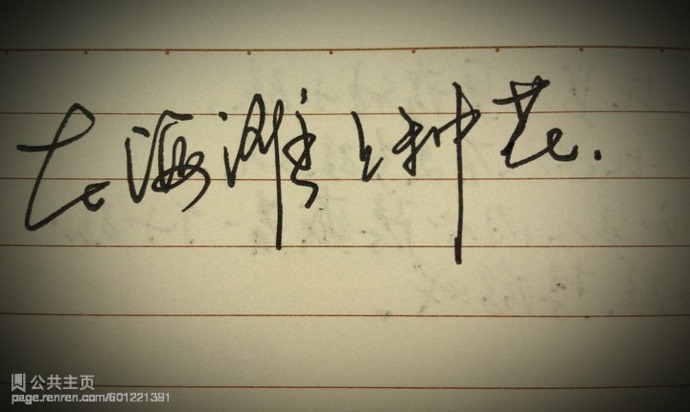 在海滩上种花.
公共主页
page.renren.com/601221391